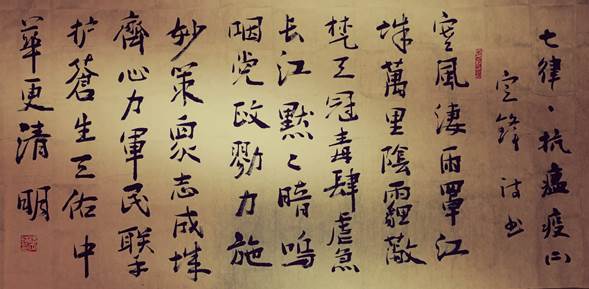 七律、抗瘟疫(二)
鋒诗书
寒風淒雨罩江
城萬里陰霾蔽
楚天冠毒肆虐急
长江默々暗鳴
咽党政勠力施
妙策眾志成城
齊心力軍民聯手
护蒼生天佑中
華更清明